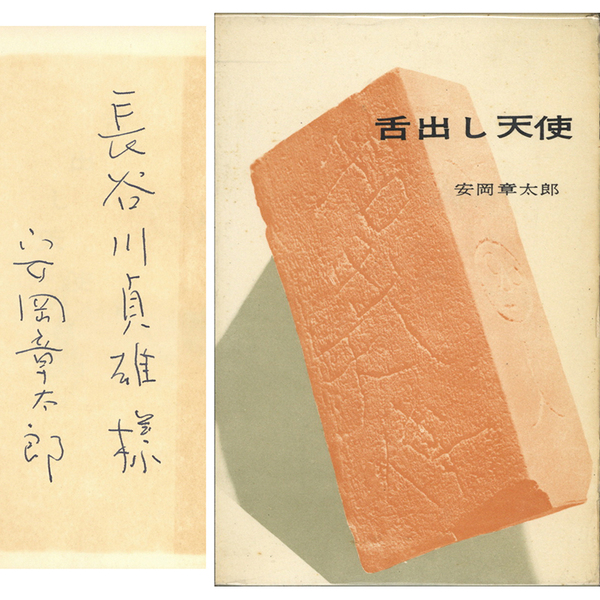 長谷川貞雄様
安岡章太郎
舌出し天使
安岡章太郎